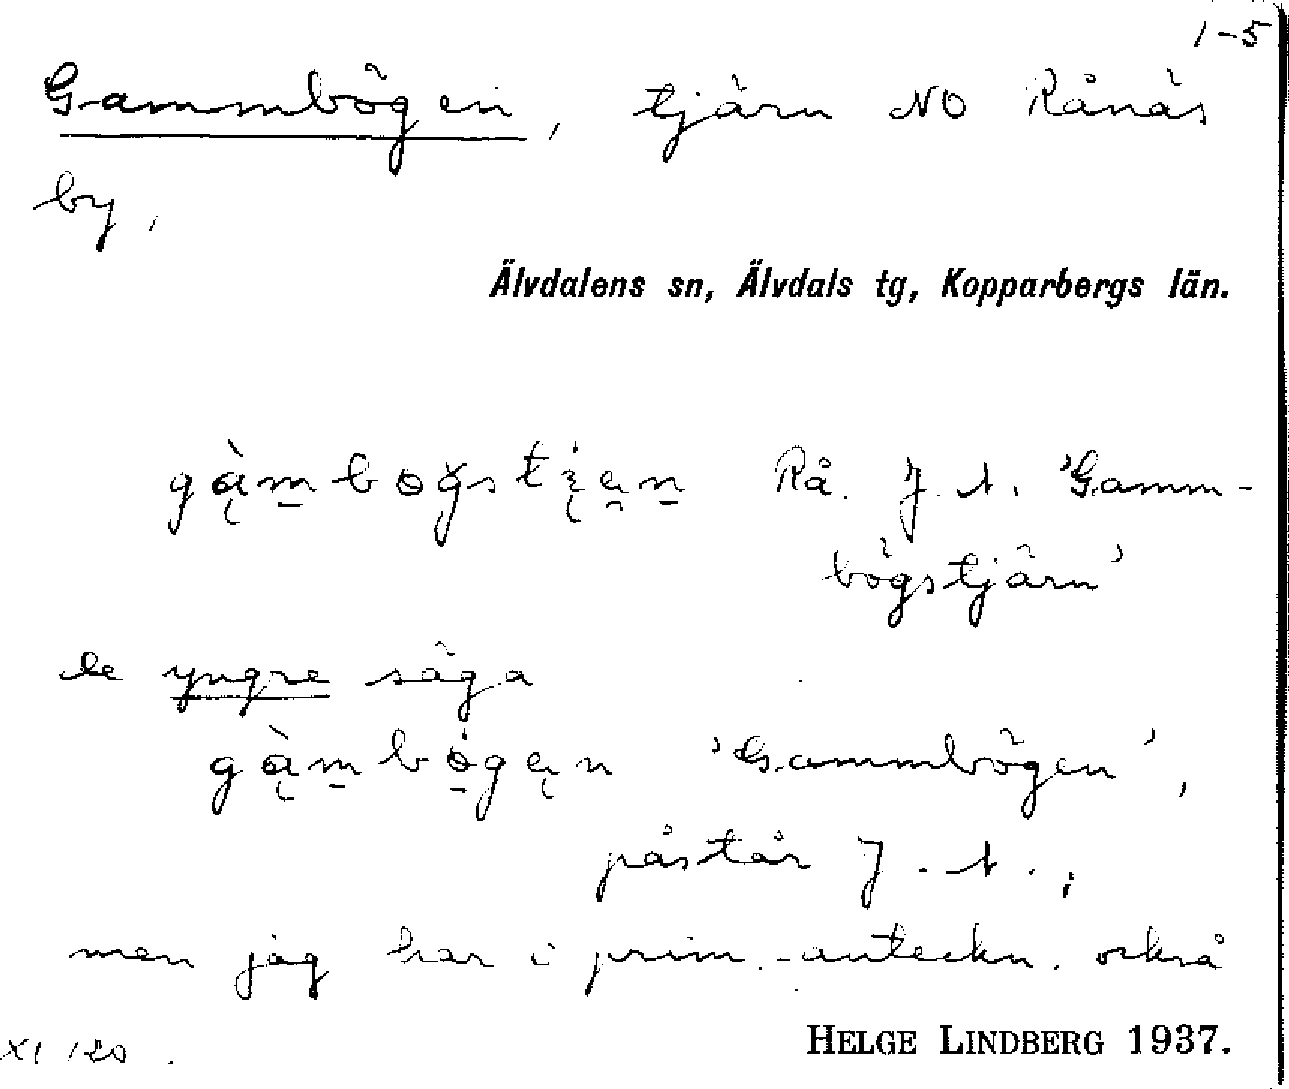 1-5
Gammbögen, tjärn NO Rånäs
by,
Älvdalens sn, Älvdals tg, Kopparbergs län.
Rå. J. A. 'Gamm-
bögstjärn'
de yngre säga
'Gammbögen',
påstår J. A.,
men jag har i prim.-anteckn. också
HELGE LINDBERG 1937.
XI 120.